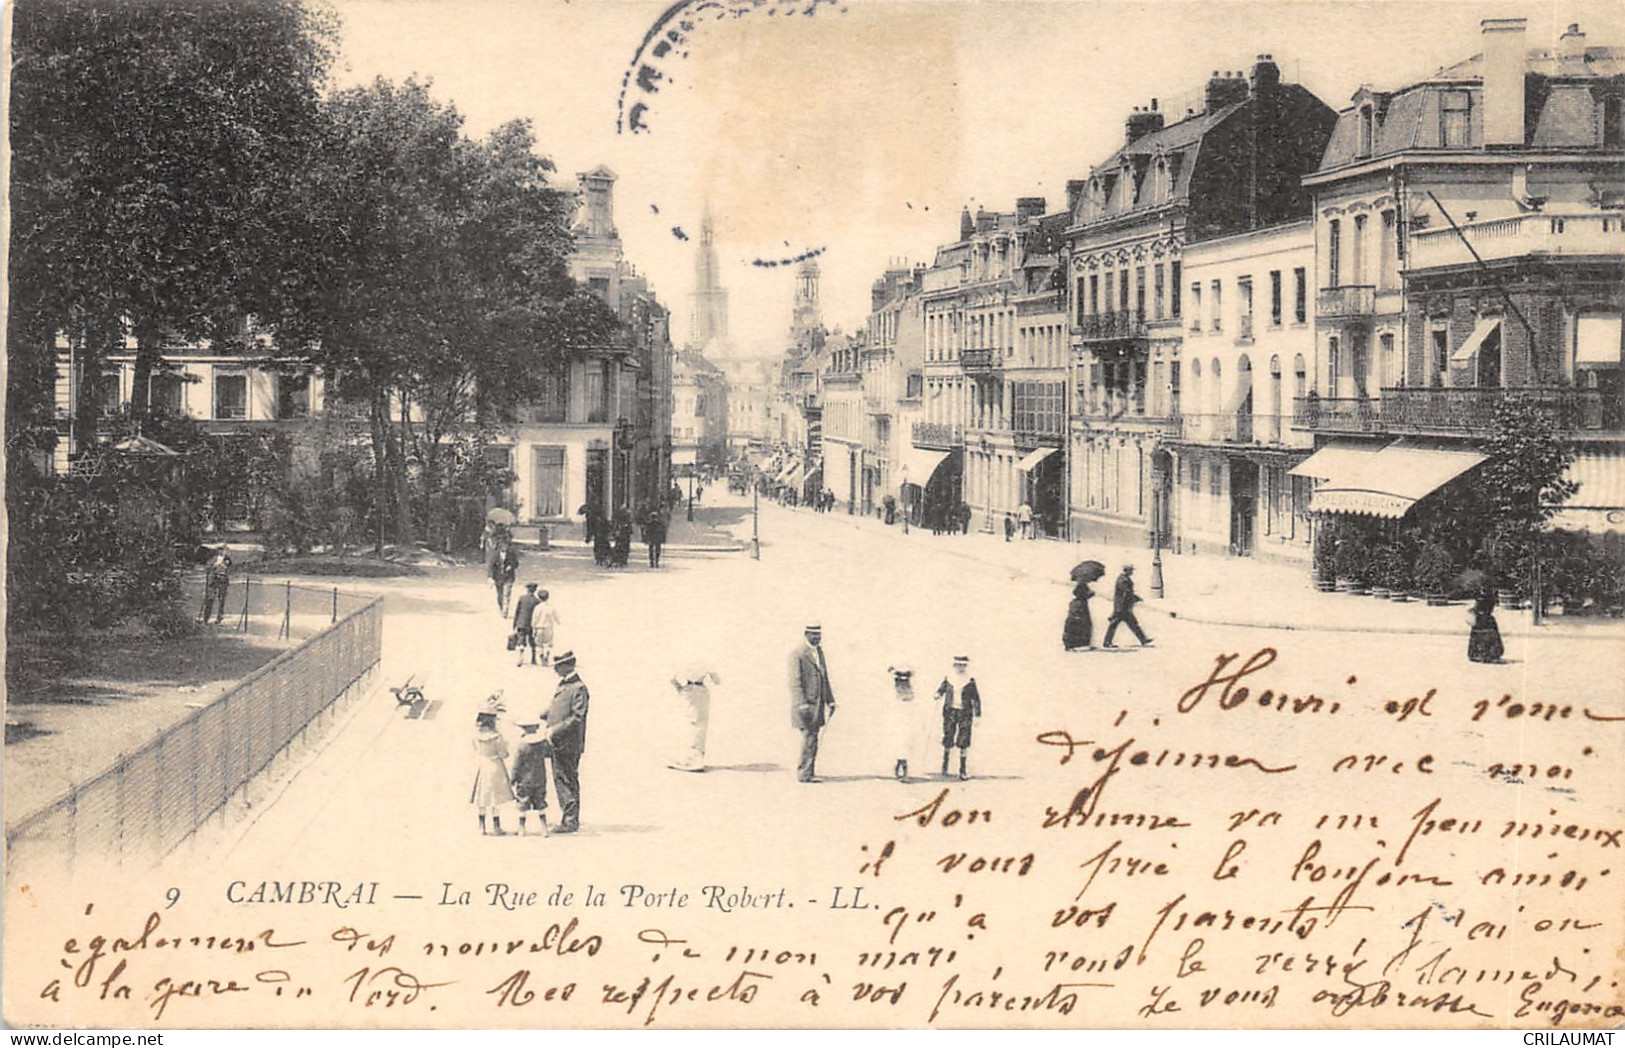 Henri est venu
déjeuner avec moi
son rhume va un peu mieux
il vous prie le bonjour ainsi
9 CAMBRAI — La Rue de la Porte Robert. - LL.
qu'à vos parents, j'ai eu
également des nouvelles de mon mari, vous le verrez samedi,
à la gare du Nord. Mes respects à vos parents Je vous embrasse Eugénie
CRILAUMAT